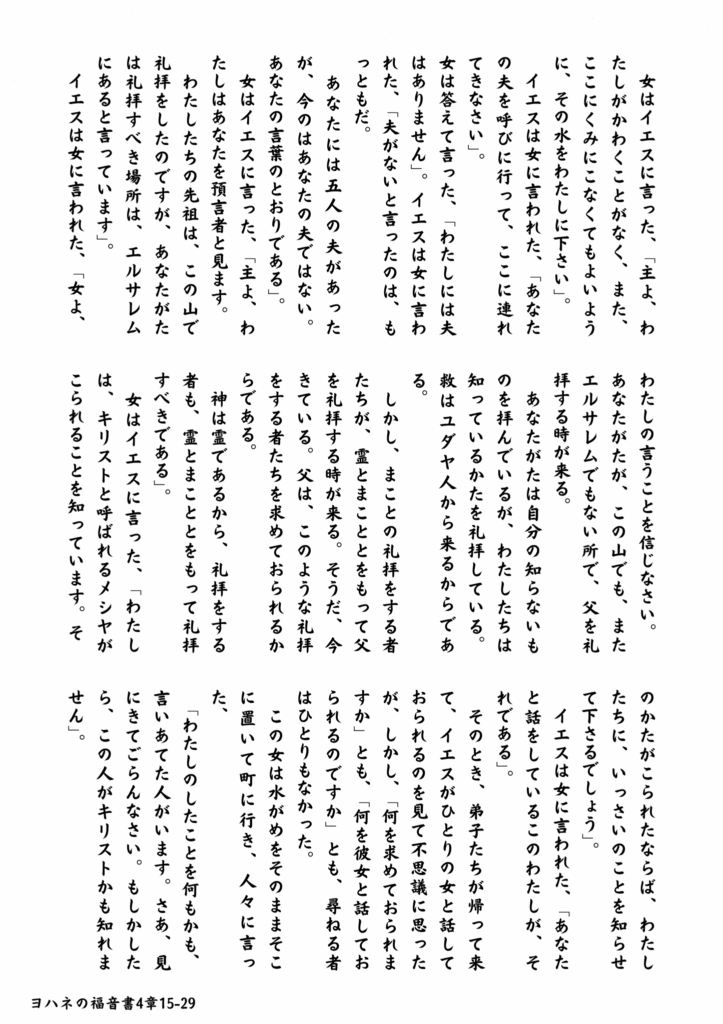 女はイエスに言った、「主よ、わ
たしがかわくことがなく、また、
ここにくみにこなくてもよいよう
に、その水をわたしに下さい」。
イエスは女に言われた、「あなた
の夫を呼びに行って、ここに連れ
てきなさい」。
女は答えて言った、「わたしには夫
はありません」。イエスは女に言わ
れた、「夫がないと言ったのは、も
っともだ。
あなたには五人の夫があった
が、今のはあなたの夫ではない。
あなたの言葉のとおりである」。
女はイエスに言った、「主よ、わ
たしはあなたを預言者と見ます。
わたしたちの先祖は、この山で
礼拝をしたのですが、あなたがた
は礼拝すべき場所は、エルサレム
にあると言っています」。
イエスは女に言われた、「女よ、
わたしの言うことを信じなさい。
あなたがたが、この山でも、また
エルサレムでもない所で、父を礼
拝する時が来る。
あなたがたは自分の知らないも
のを拝んでいるが、わたしたちは
知っているかたを礼拝している。
救はユダヤ人から来るからであ
る。
しかし、まことの礼拝をする者
たちが、霊とまこととをもって父
を礼拝する時が来る。そうだ、今
きている。父は、このような礼拝
をする者たちを求めておられるか
らである。
神は霊であるから、礼拝をする
者も、霊とまこととをもって礼拝
すべきである」。
女はイエスに言った、「わたし
は、キリストと呼ばれるメシヤが
こられることを知っています。そ
のかたがこられたならば、わたし
たちに、いっさいのことを知らせ
て下さるでしょう」。
イエスは女に言われた、「あなた
と話をしているこのわたしが、そ
れである」。
そのとき、弟子たちが帰って来
て、イエスがひとりの女と話して
おられるのを見て不思議に思った
が、しかし、「何を求めておられま
すか」とも、「何を彼女と話してお
られるのですか」とも、尋ねる者
はひとりもなかった。
この女は水がめをそのままそこ
に置いて町に行き、人々に言っ
た、
「わたしのしたことを何もかも、
言いあてた人がいます。さあ、見
にきてごらんなさい。もしかした
ら、この人がキリストかも知れま
せん」。
ヨハネの福音書4章15-29